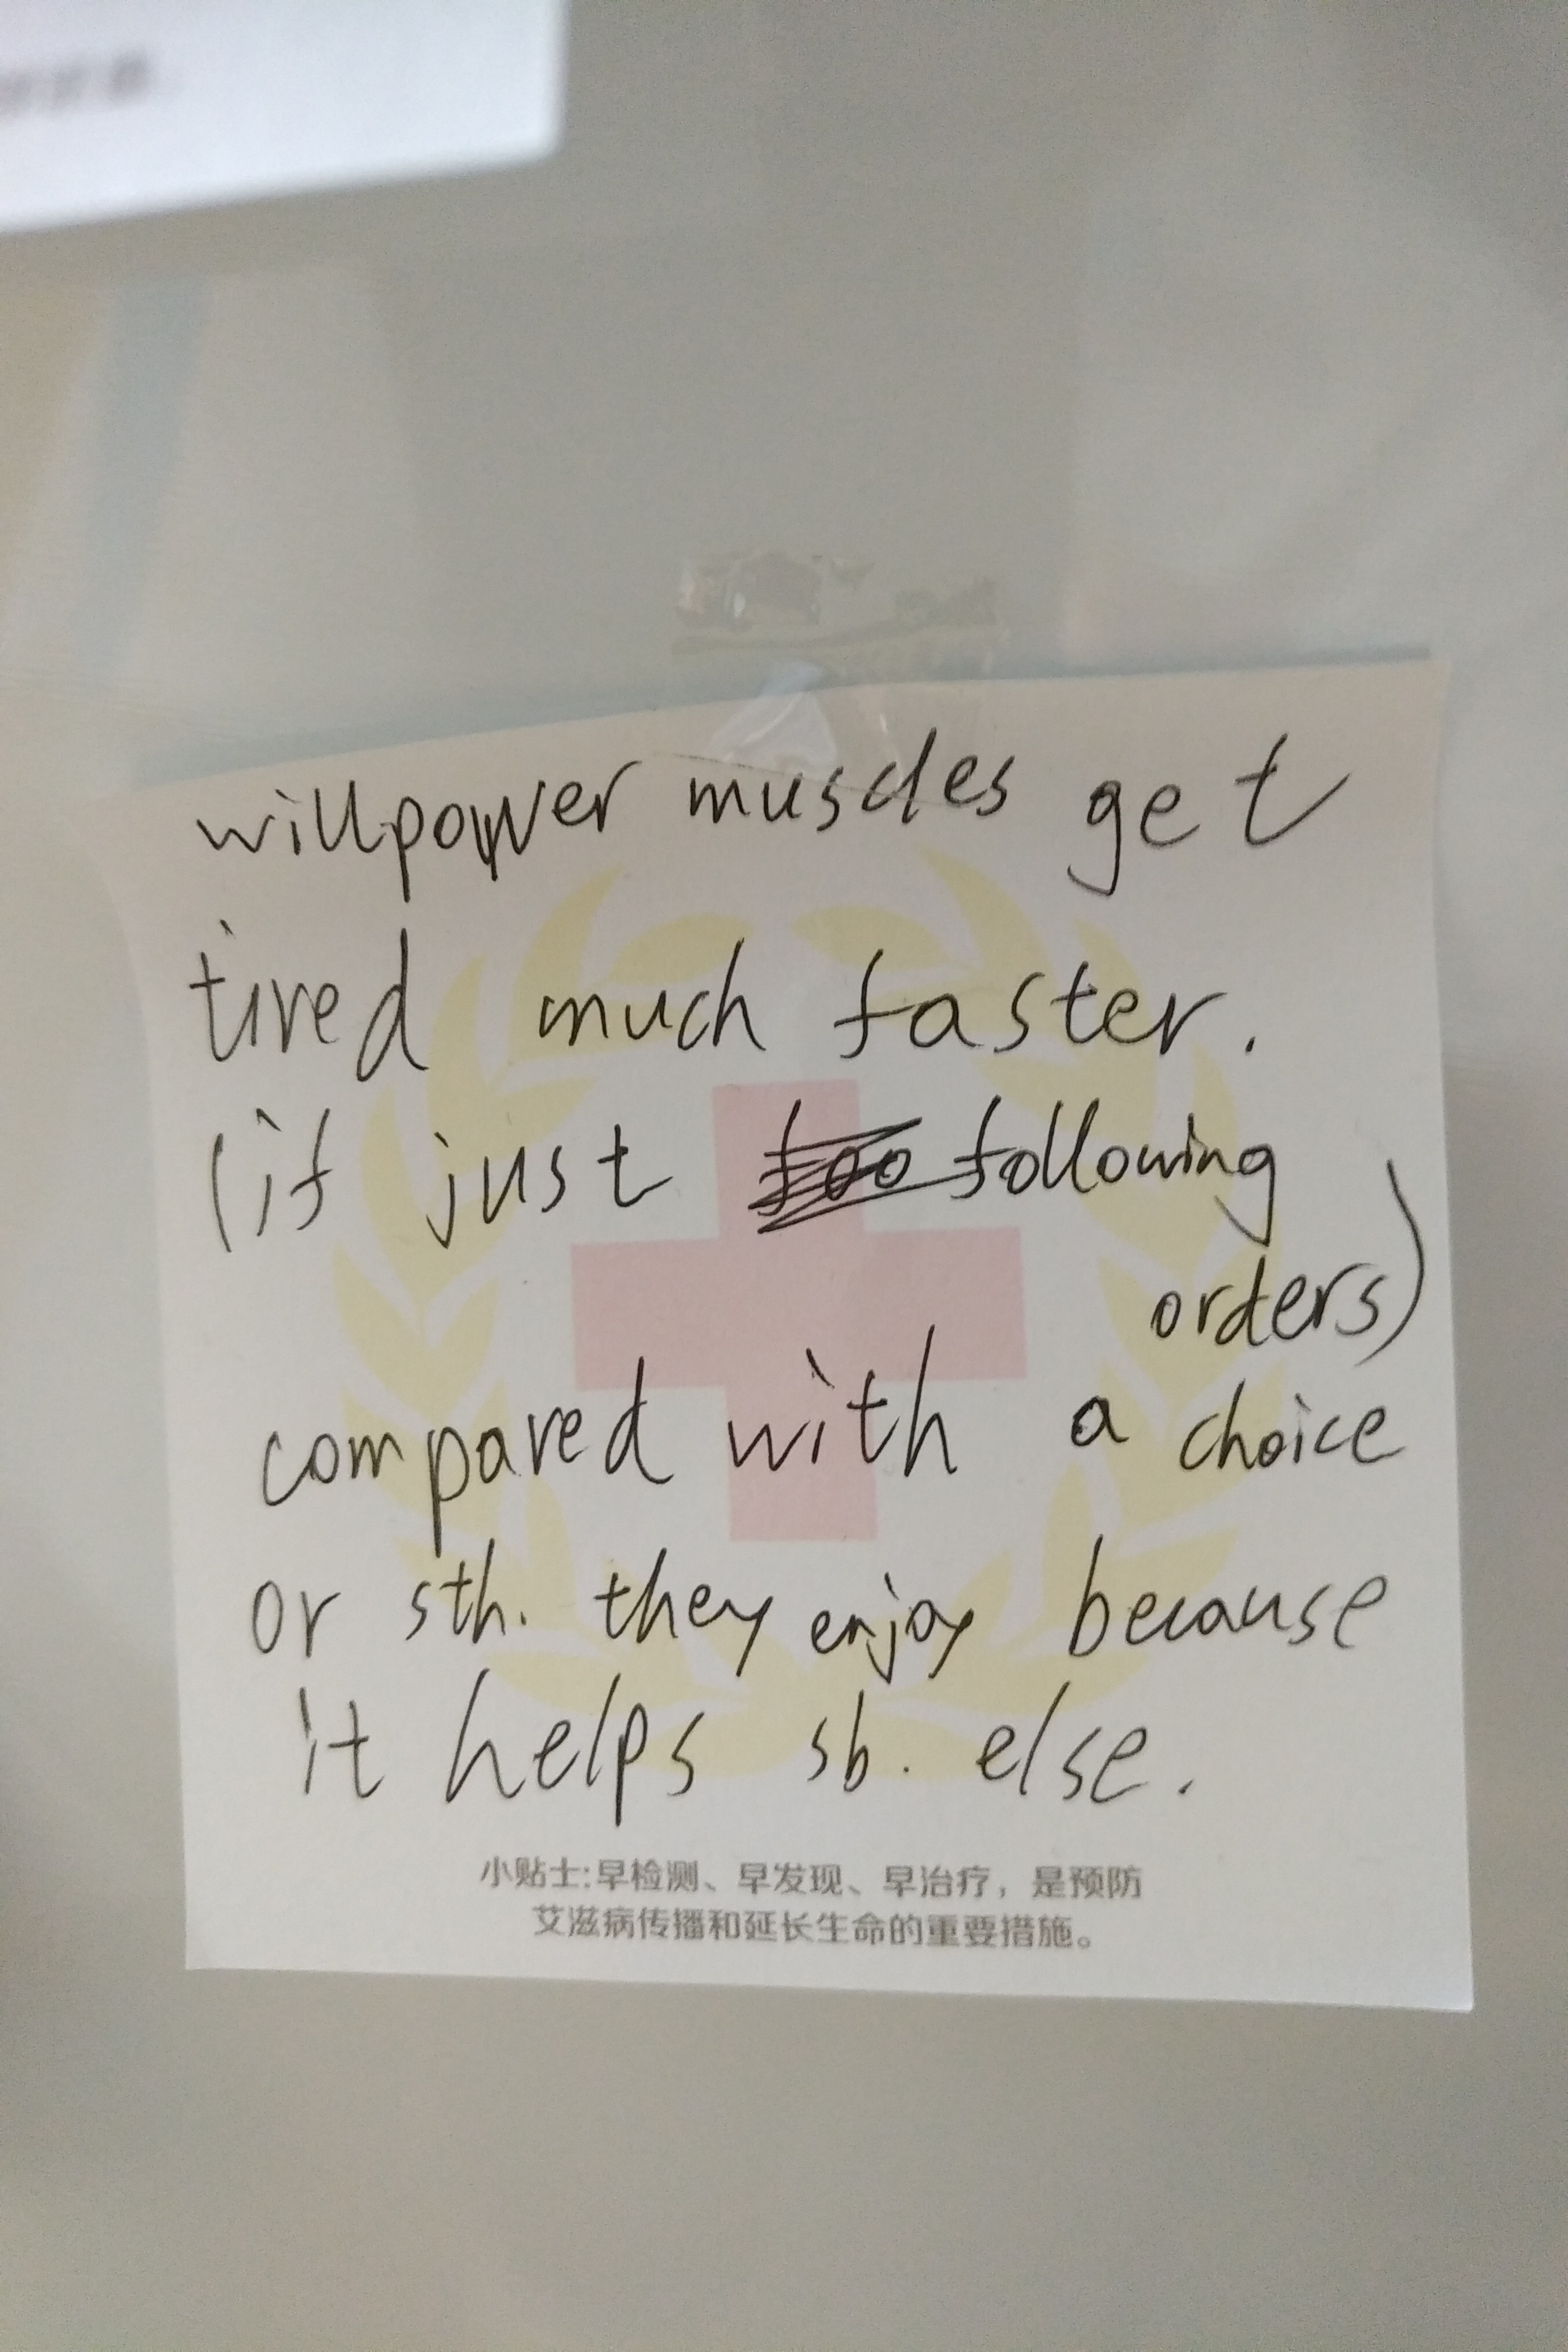 willpower muscles get
tired much faster.
(if just following
orders)
compared with a choice
or sth. they enjoy because
it helps sb. else.
小贴士:早检测、早发现、早治疗，是预防
艾滋病传播和延长生命的重要措施。